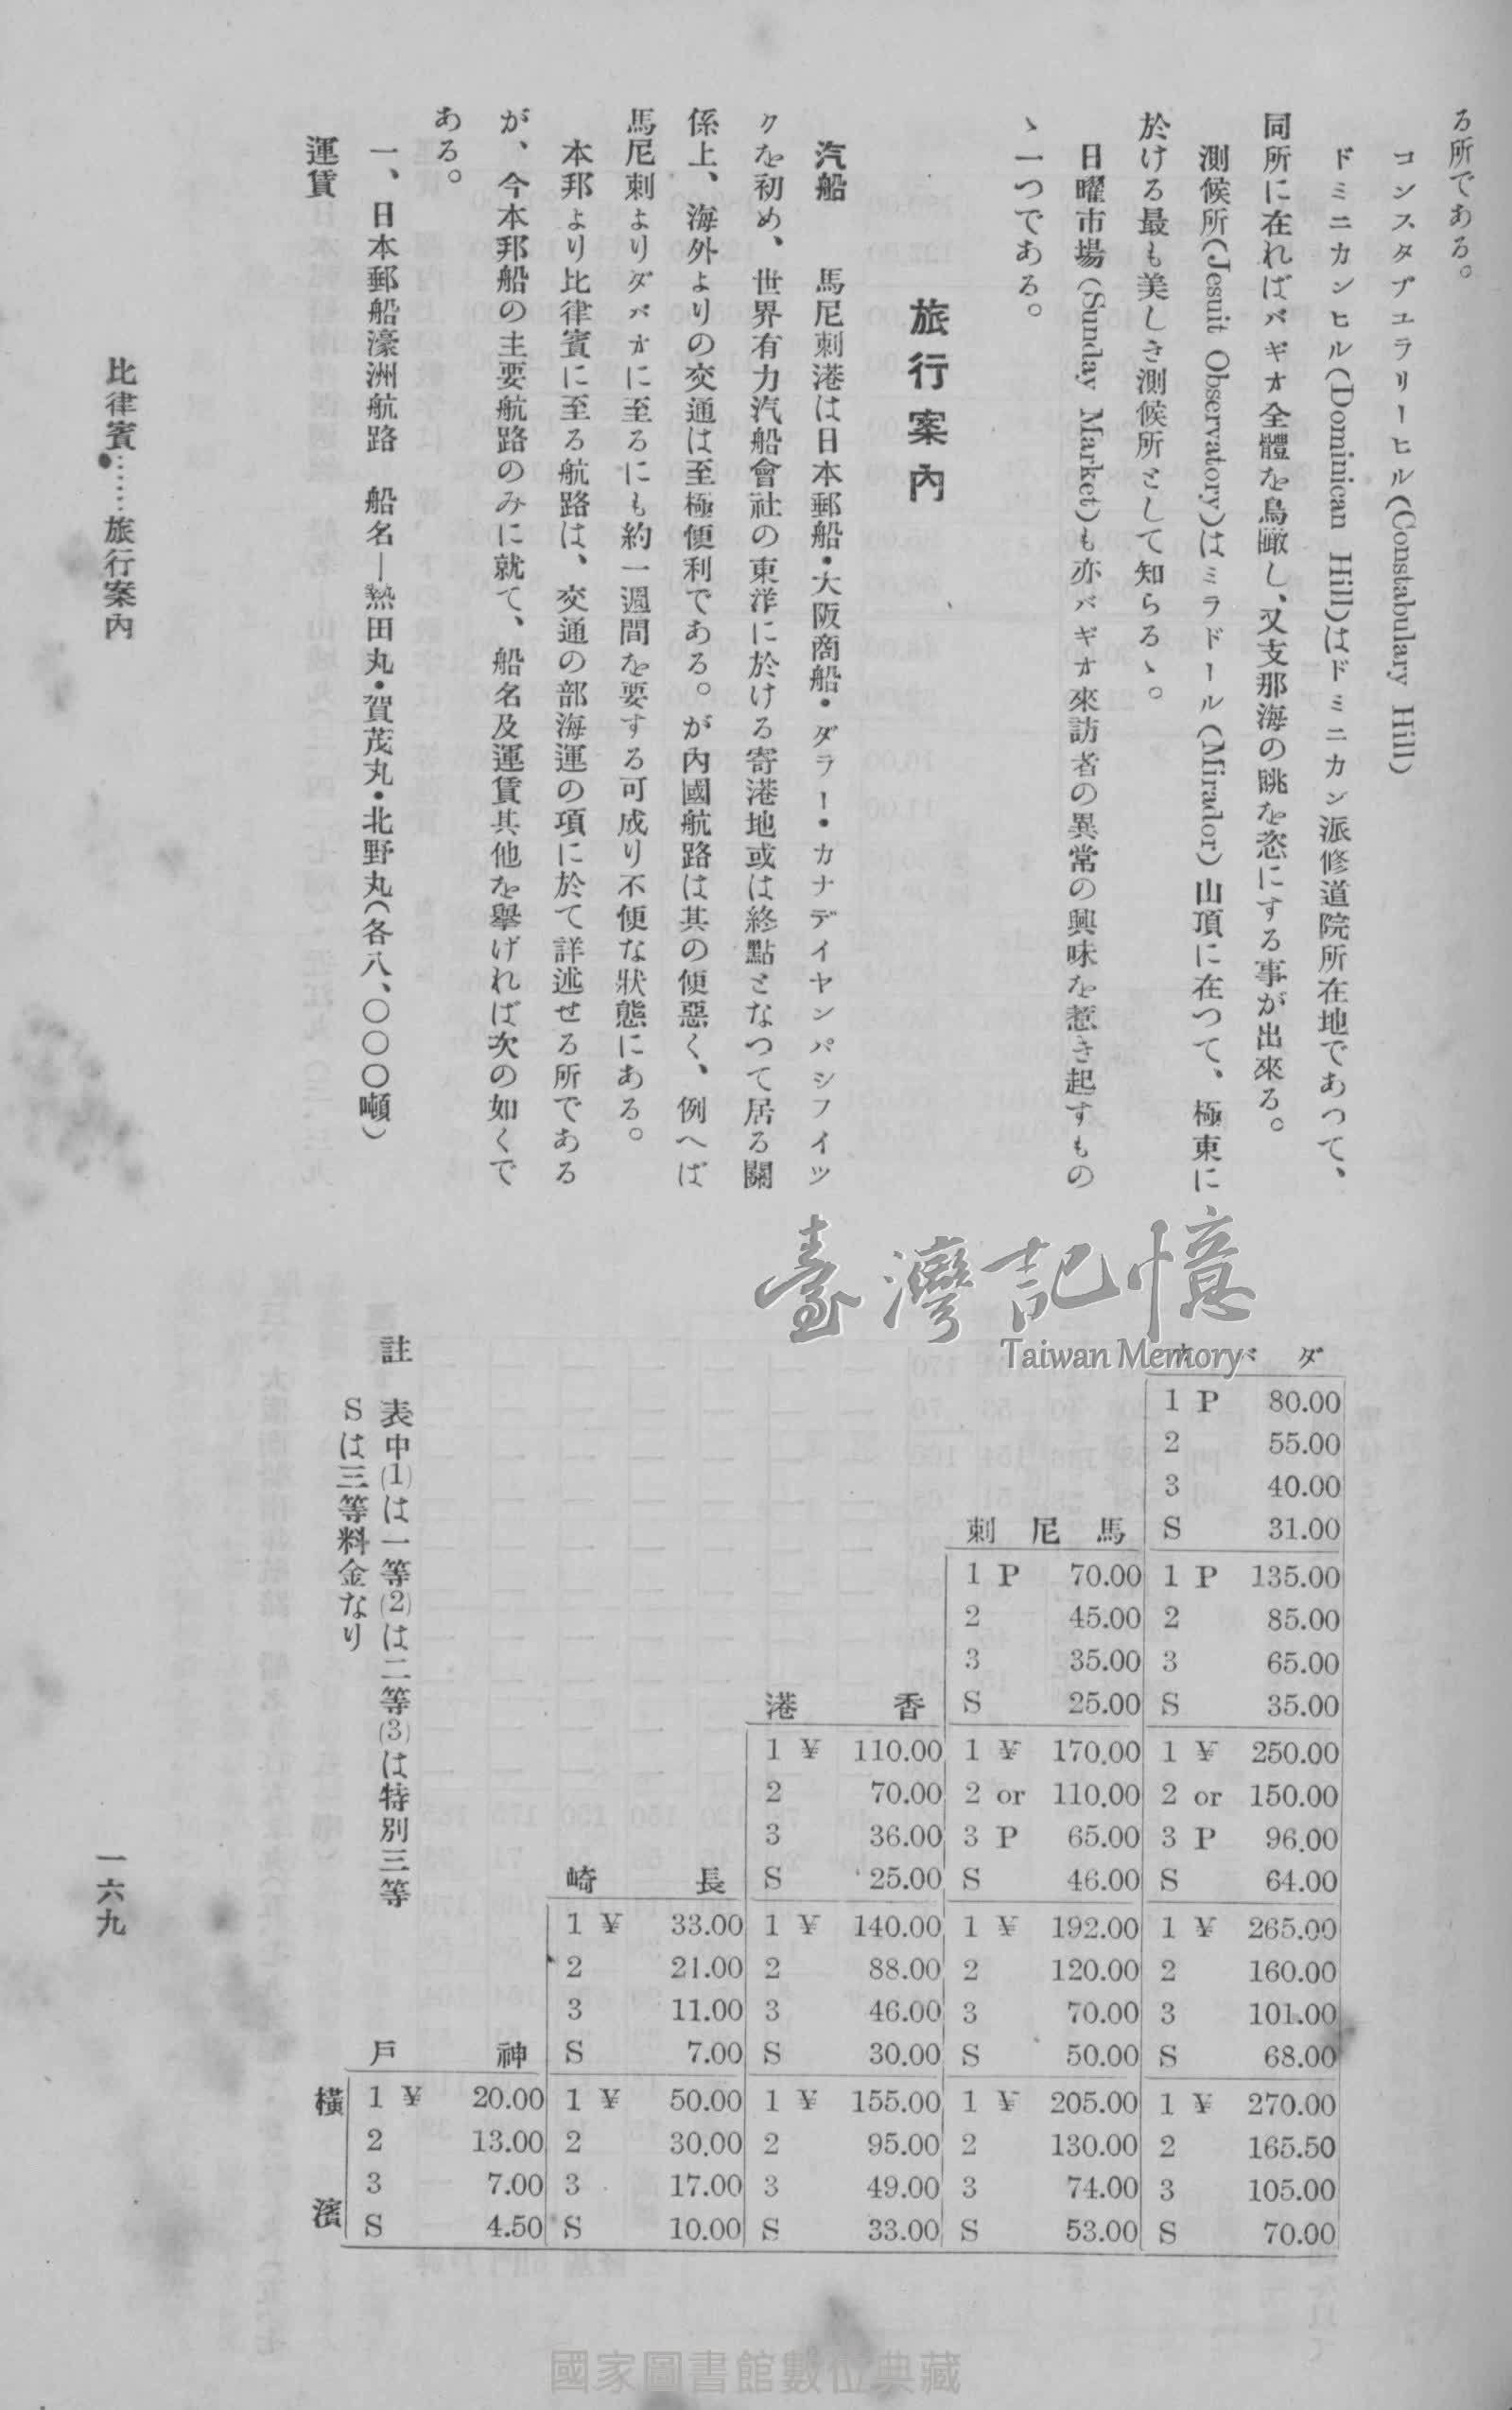 る所である。
コンスタブユラリーヒル(Constabulary Hill)
ドミニカンヒル(Dominican Hill)はドミニカン派修道院所在地であつて、
同所に在ればバギオ全體を鳥瞰し、又支那海の眺を恣にする事が出來る。
測候所(Jesuit Observatory)はミラドール(Mirador)山頂に在つて、極東に
於ける最も美しき測候所として知らるゝ。
日曜市場(Sunday Market)も亦バギオ來訪者の異常の興味を惹き起すもの
ゝ一つである。
旅行案內
汽船 馬尼刺港は日本郵船・大阪商船・ダラー・カナデイヤンパシフイツ
クを初め、世界有力汽船會社の東洋に於ける寄港地或は終點となつて居る關
係上、海外よりの交通は至極便利である。が內國航路は其の便惡く、例へば
馬尼刺よりダバオに至るにも約一週間を要する可成り不便な狀態にある。
本邦より比律賓に至る航路は、交通の部海運の項に於て詳述せる所である
が、今本邦船の主要航路のみに就て、船名及運賃其他を擧げれば次の如くで
ある。
一、日本郵船濠洲航路 船名―熱田丸・賀茂丸・北野丸(各八、〇〇〇噸)
運賃
ダバオ
1 P 80.00
2 55.00
3 40.00
S 31.00
馬尼刺
1 P 70.00 1 P 135.00
2 45.00 2 85.00
3 35.00 3 65.00
S 25.00 S 35.00
香港
1 ¥ 110.00 1 ¥ 170.00 1 ¥ 250.00
2 70.00 2 or 110.00 2 or 150.00
3 36.00 3 P 65.00 3 P 96.00
S 25.00 S 46.00 S 64.00
長崎
1 ¥ 33.00 1 ¥ 140.00 1 ¥ 192.00 1 ¥ 265.00
2 21.00 2 88.00 2 120.00 2 160.00
3 11.00 3 46.00 3 70.00 3 101.00
S 7.00 S 30.00 S 50.00 S 68.00
神戶
橫濱
1 ¥ 20.00 1 ¥ 50.00 1 ¥ 155.00 1 ¥ 205.00 1 ¥ 270.00
2 13.00 2 30.00 2 95.00 2 130.00 2 165.50
3 7.00 3 17.00 3 49.00 3 74.00 3 105.00
S 4.50 S 10.00 S 33.00 S 53.00 S 70.00
註 表中(1)は一等(2)は二等(3)は特別三等
Sは三等料金なり
比律賓……旅行案內
一六九
臺灣記憶
Taiwan Memory
國家圖書館數位典藏